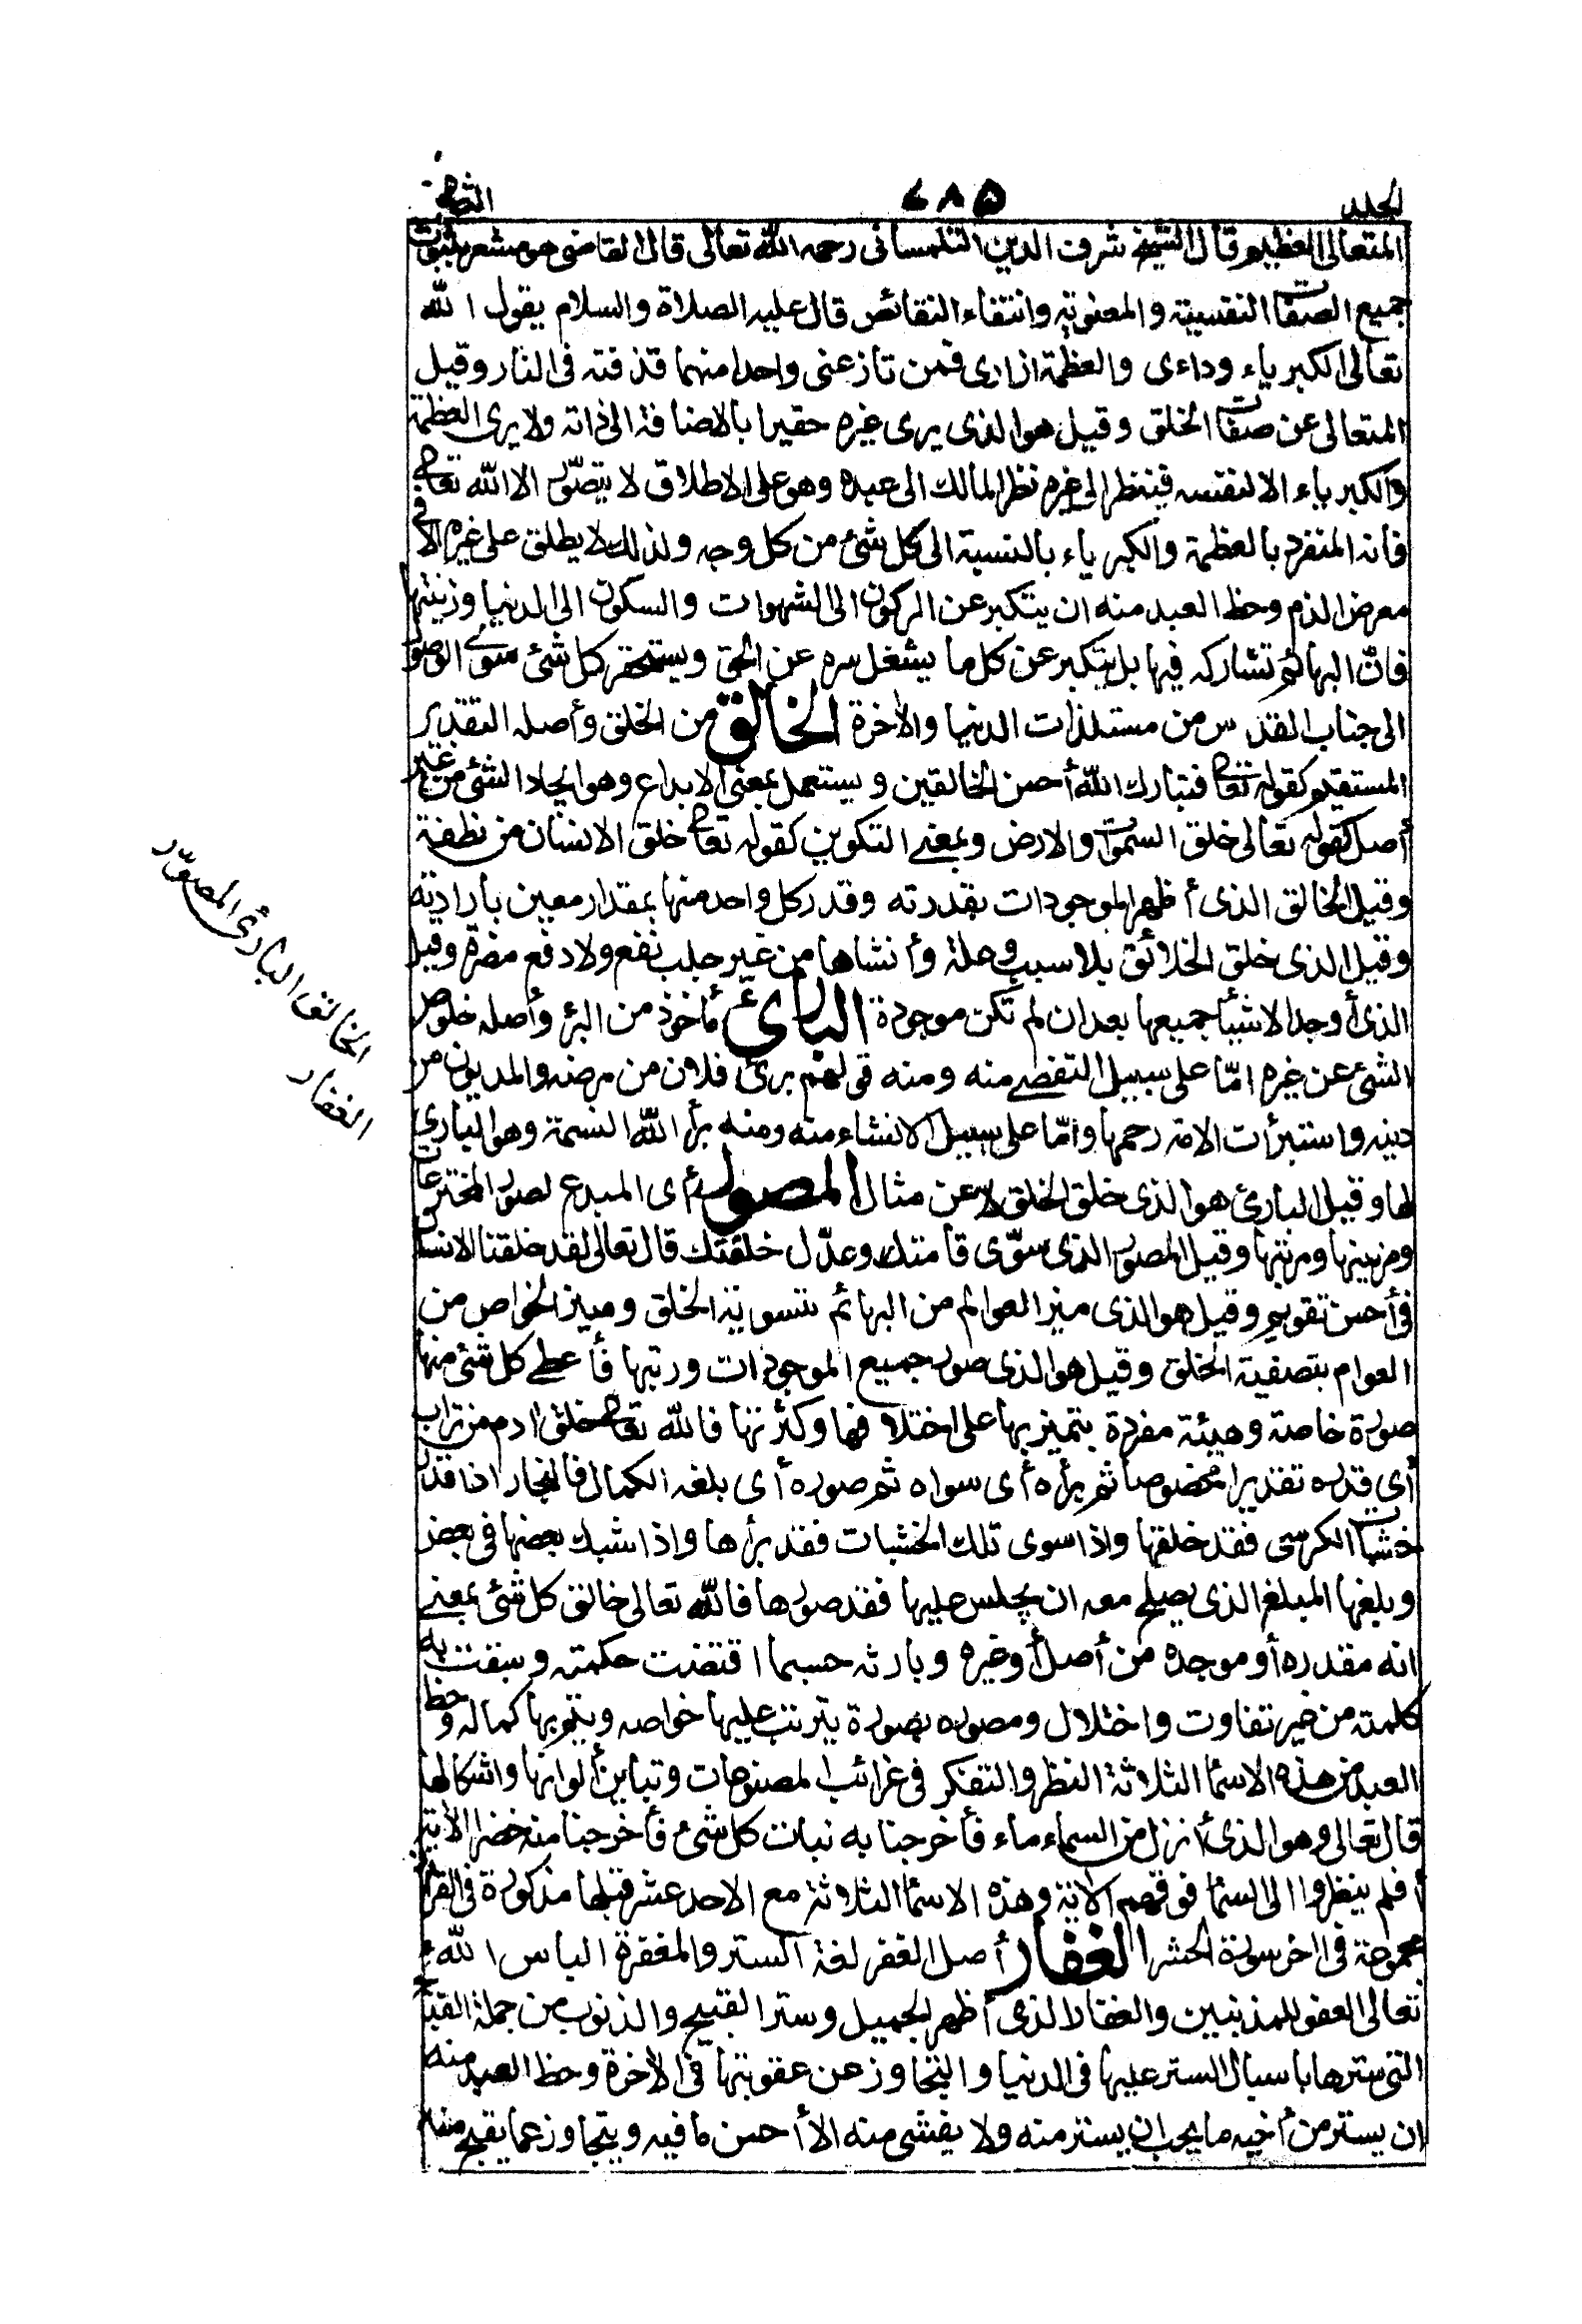 المجلد ٢٨٥ الثانى
المتعالى العظيم قال الشيخ شرف الدين التلمسانى رحمه الله تعالى قال القاضى هو مشعر بثبوت
جميع الصفات النفسية والمعنوية وانتفاء النقائص قال عليه الصلاة والسلام يقول الله
تعالى الكبرياء رداءى والعظمة ازارى فمن نازعنى واحدا منهما قذفته فى النار وقيل
المتعالى عن صفات الخلق وقيل هو الذى يرى غيره حقيرا بالاضافة الى ذاته ولا يرى العظمة
والكبرياء الا لنفسه فينظر الى غيره نظر المالك الى عبده وهو على الاطلاق لا يتصوّر الا الله تعالى
فانه المنفرد بالعظمة والكبرياء بالنسبة الى كل شئ من كل وجه ولذلك لا يطلق على غيره الا فى
معرض الذم وحظ العبد منه ان يتكبر عن الركون الى الشهوات والسكون الى الدنيا وزينتها
فانّ البهائم تشاركه فيها بل يتكبر عن كل ما يشغل سره عن الحق ويستحقر كل شئ سوى الوصول
الى جناب القدس من مستلذات الدنيا والآخرة الخالق من الخلق وأصله التقدير
المستقيم كقوله تعالى فتبارك الله أحسن الخالقين ويستعمل بمعنى الابداع وهو ايجاد الشئ من غير
أصل كقوله تعالى خلق السموات والارض وبمعنى التكوين كقوله تعالى خلق الانسان من نطفة
وقيل الخالق الذى أظهر الموجودات بقدرته وقدر كل واحد منها بمقدار معين بارادته
وقيل الذى خلق الخلائق بلا سبب وعلة وأنشاها من غير جلب نفع ولا دفع مضرة وقيل
الذى أوجد الاشيأ جميعها بعد ان لم تكن موجودة البارئ مأخوذ من البرء وأصله خلوص
الشئ عن غيره امّا على سبيل التفصى منه ومنه قولهم برئ فلان من مرضه والمديون من
دينه واستبرأت الامة رحمها وامّا على سبيل الانشاء منه ومنه برأ الله النسمة وهو البارئ
لها وقيل البارئ هو الذى خلق الخلق لا عن مثال المصور أى المبدع لصور المخترعات
ومزينها ومرتبها وقيل المصور الذى سوّى قامتك وعدّل خلقتك قال تعالى لقد خلقنا الانسان
فى أحسن تقويم وقيل هو الذى ميز العوالم من البهائم بتسوية الخلق وميز الخواص من
العوام بتصفية الخلق وقيل هو الذى صور جميع الموجودات ورتبها فأعطى كل شئ منها
صورة خاصة وهيئة مفردة يتميز بها على اختلافها وكثرتها فالله تعالى خلق ادم من تراب
أى قدره تقديرا مخصوصا ثم برأه أى سواه ثم صوره أى بلغه الكمال فالنجار اذا قدر
خشبات الكرسى فقد خلقها واذا سوى تلك الخشبات فقد برأها واذا شبك بعضها فى بعض
وبلغها المبلغ الذى يصلح معه ان يجلس عليها فقد صورها فالله تعالى خالق كل شئ بمعنى
انه مقدره أو موجده من أصل أو غيره وبارئه حسبما اقتضت حكمته وسبقت به
كلمته من غير تفاوت واختلال ومصوره بصورة يترتب عليها خواصه ويتم بها كماله وحظ
العبد من هذه الاسما الثلاثة النظر والتفكر فى غرائب المصنوعات وتباين ألوانها واشكالها
قال تعالى وهو الذى أنزل من السماء ماء فأخرجنا به نبات كل شئ فأخرجنا منه خضرا الآية
أفلم ينظروا الى السما فوقهم الآية وهذه الاسما الثلاثة مع الاحد عشر قبلها مذكورة فى القرآن
مجموعة فى اخر سورة الحشر الغفار أصل الغفر لغة الستر والمغفرة الباس الله
تعالى العفو للمذنبين والغفار الذى أظهر الجميل وستر القبيح والذنوب من جملة القبائح
التى سترها باسبال الستر عليها فى الدنيا والتجاوز عن عقوبتها فى الآخرة وحظ العبد منه
ان يستر من أخيه ما يجب ان يستر منه ولا يفشى منه الا أحسن ما فيه ويتجاوز عما يقبح منه
الخالق البارئ المصوّر
الغفار